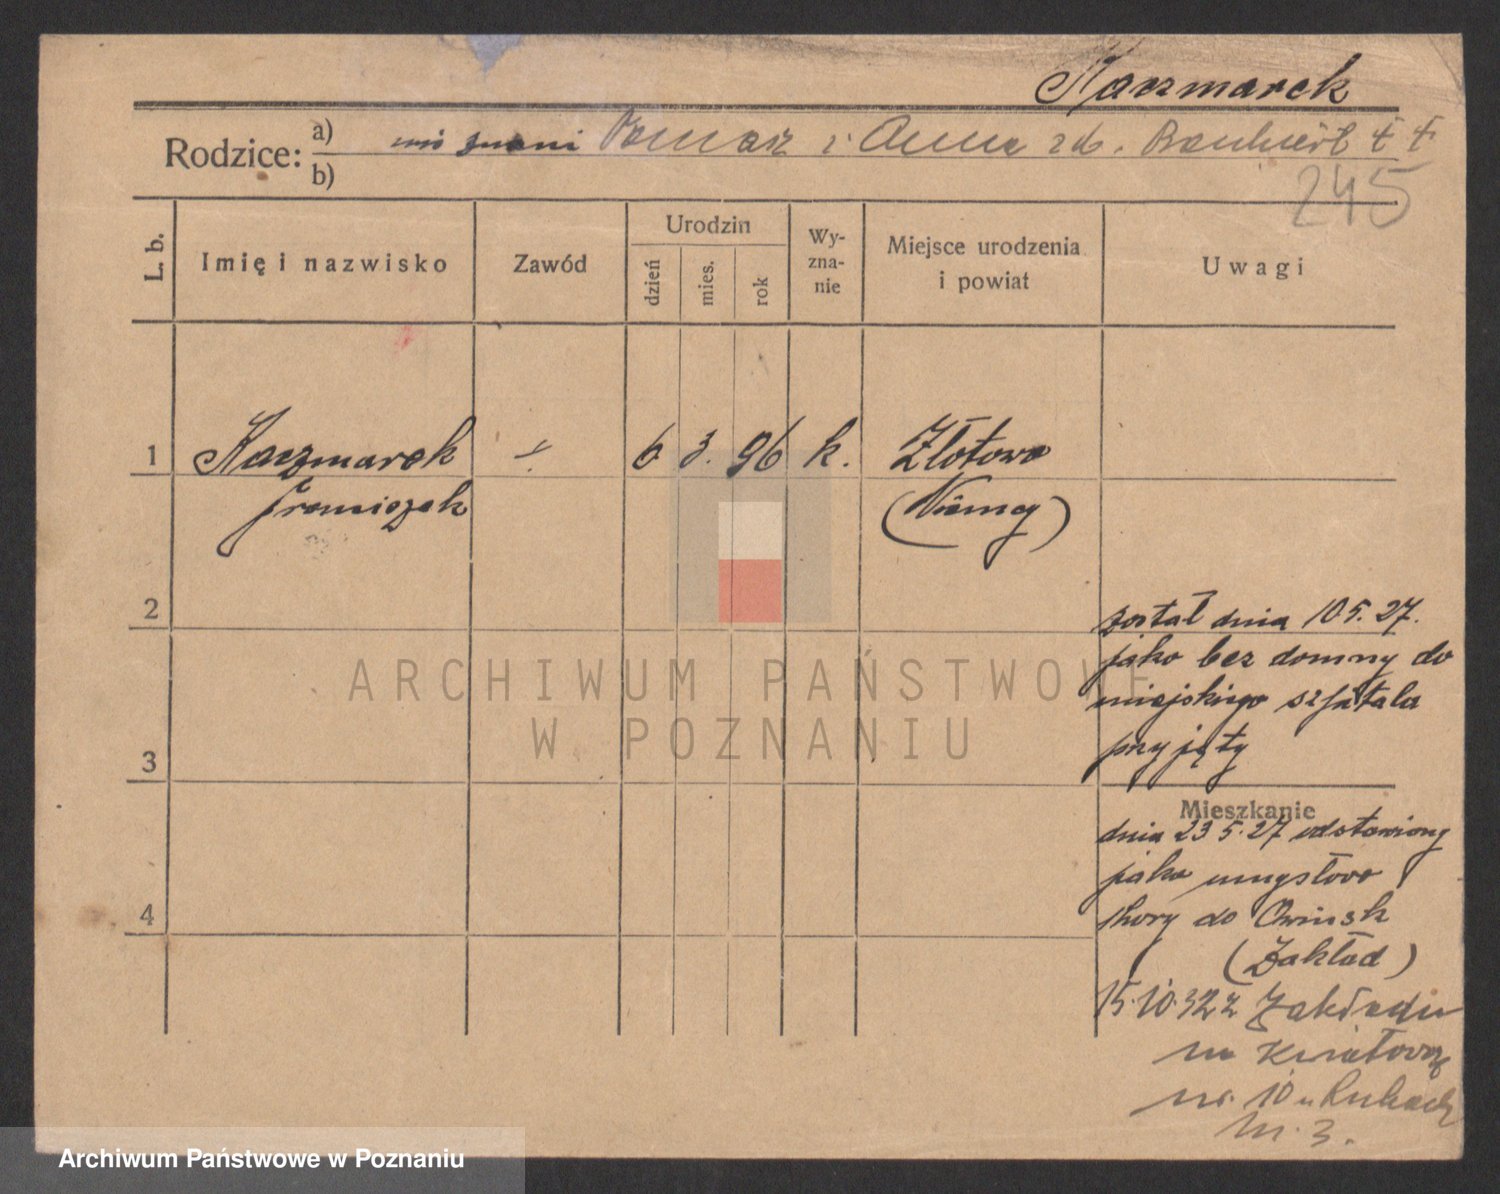 Kaczmarek
Rodzice: a) nie znani Tomasz i Anna zd. ‡ ‡
b)
245
L. b.
Imię i nazwisko
Zawód
Urodzin
dzień
mies.
rok
Wy-
zna-
nie
Miejsce urodzenia
i powiat
Uwagi
1 Kaczmarek 6 3. 96 k. Złotowo
Franciszek (Niemcy)
2
został dnia 10.5.27.
jako bez domny do
miejskiego szpitala
przyjęty
3
Mieszkanie
dnia 23 5.27 odstawiony
jako umysłowo
4
chory do Owinsk
(Zakład)
15.10.32 z Zakładu
na Kwiatową
nr. 10 u
m. 3.
ARCHIWUM PAŃSTWOWE
W POZNANIU
Archiwum Państwowe w Poznaniu